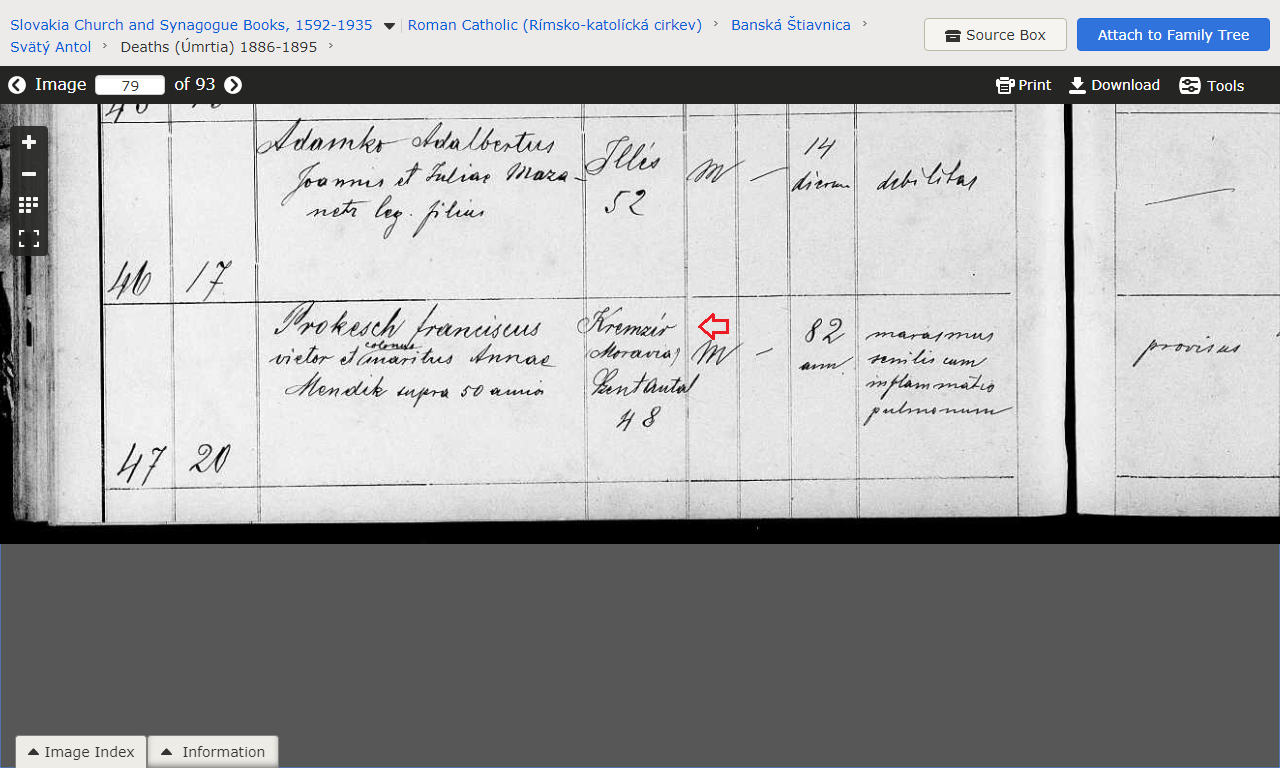 Slovakia Church and Synagogue Books, 1592-1935
Roman Catholic (Rímsko-katolícká cirkev)
Banská Štiavnica
Svätý Antol
Deaths (Úmrtia) 1886-1895
Source Box
Attach to Family Tree
Image 79 of 93
Print
Download
Tools
Adamko Adalbertus
Joannis et Juliae Maza-
netz leg. filius
Illés
52
M
—
14
dierum
debilitas
46
17
Prokesch franciscus
colonus
vietor et maritus Annae
Mendik supra 50 annis
Kremzír
(Moravia)
Szent Antal
48
M
—
82
ann.
marasmus
senilis cum
inflammatio
pulmonum
provisus
47
20
Image Index
Information